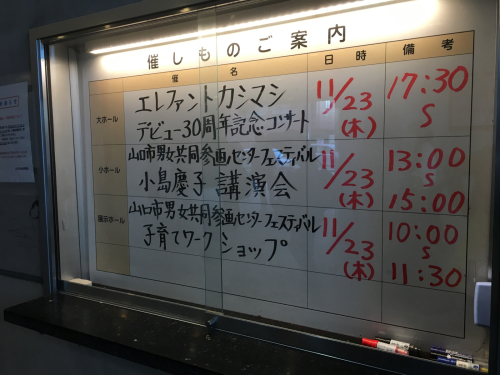 催しものご案内
催名 日時 備考
大ホール エレファントカシマシ
デビュー30周年記念コンサート 11/23(木) 17:30 S
小ホール 山口市男女共同参画センターフェスティバル
小島慶子 講演会 11/23(木) 13:00 S 15:00
展示ホール 山口市男女共同参画センターフェスティバル
子育てワークショップ 11/23(木) 10:00 S 11:30